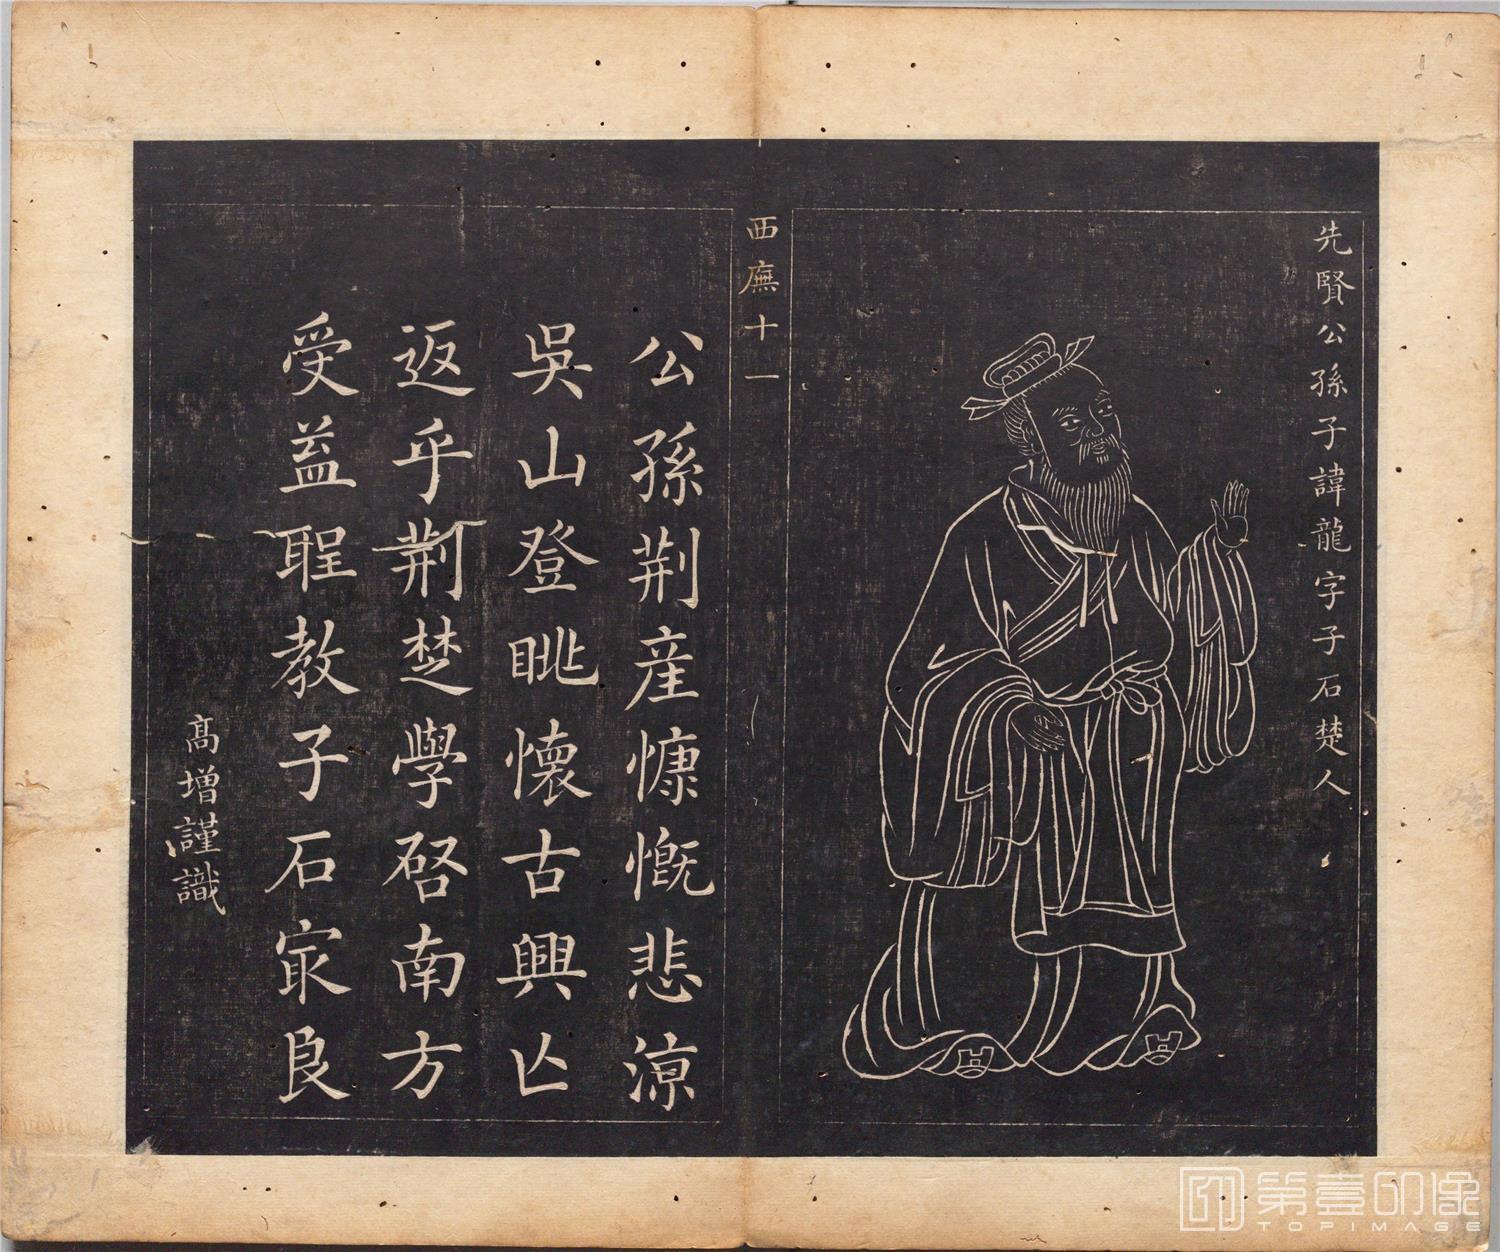 先賢公孫子諱龍字子石楚人
西廡十一
公孫荆産慷慨悲涼
吳山登眺懷古興亡
返乎荆楚學啓南方
受益聖教子石冣良
高增謹識
第壹印像
TOPIMAGE